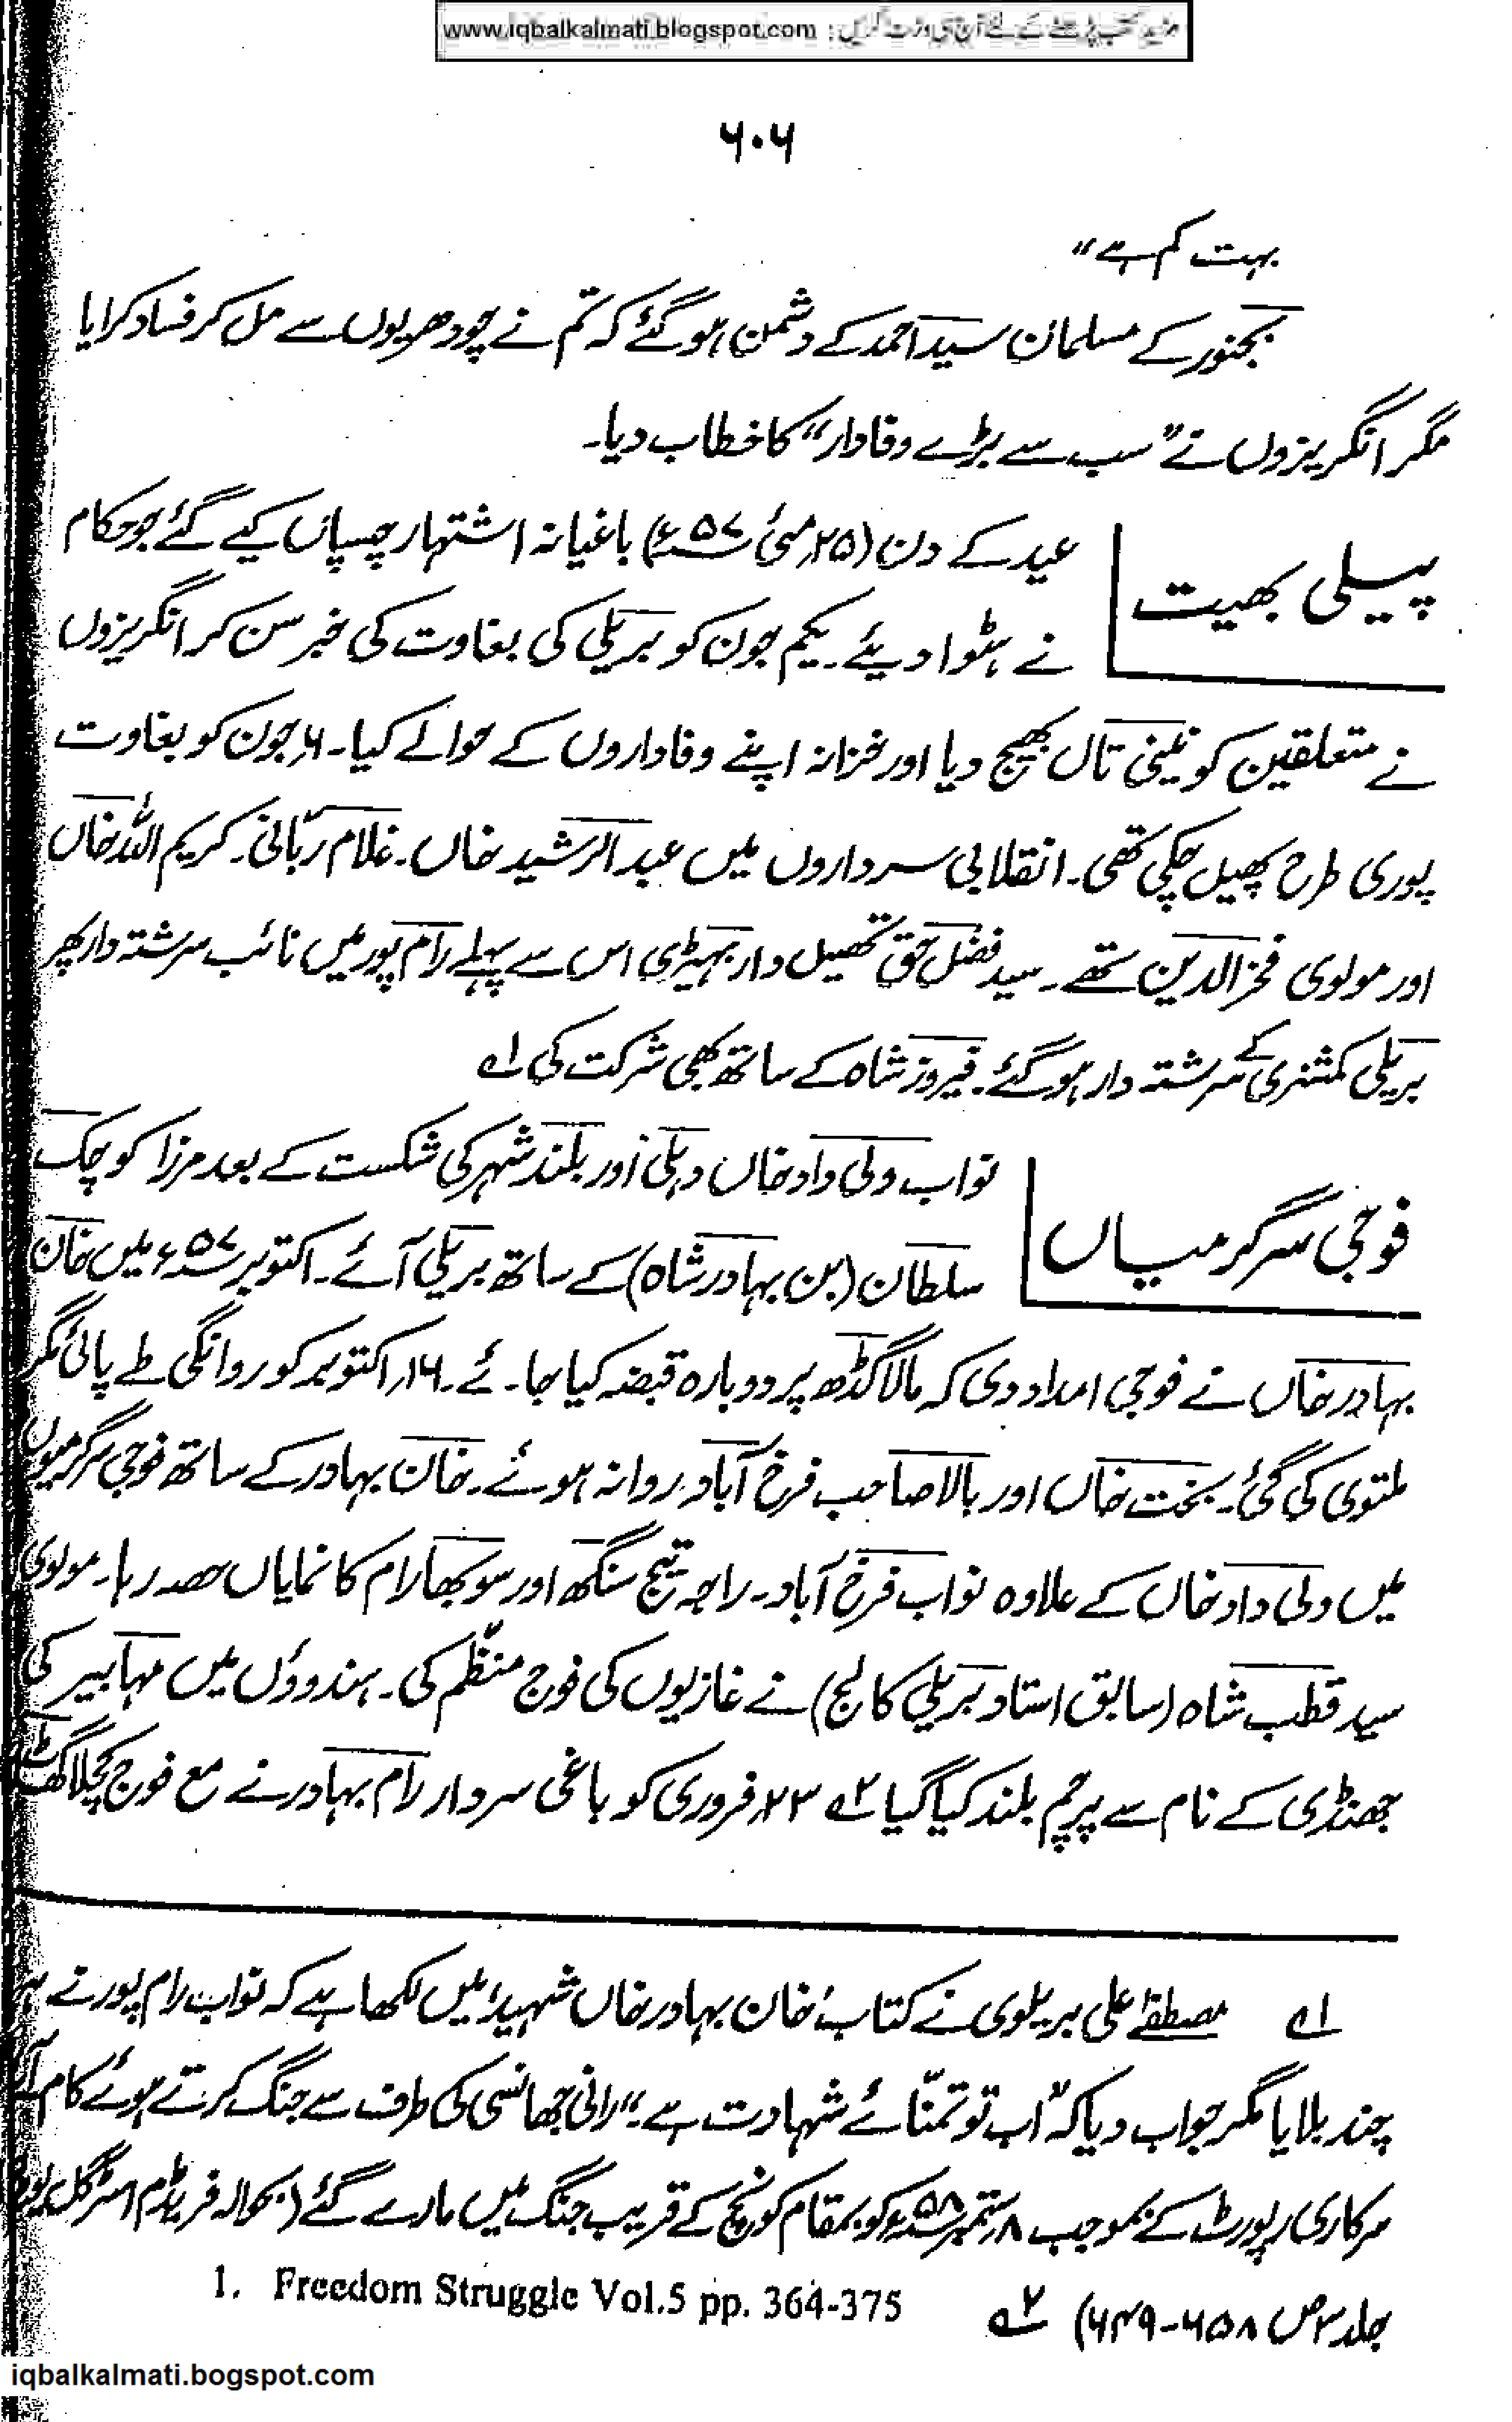 مزید کتب پڑھنے کے لئے آج ہی وزٹ کریں : www.iqbalkalmati.blogspot.com
۶۰۶
بہت کم ہے"
بجنور کے مسلمان سید احمد کے دشمن ہو گئے کہ تم نے چودھریوں سے مل کر فساد کرایا
مگر انگریزوں نے "سب سے بڑے وفادار" کا خطاب دیا۔
پیلی بھیت
عید کے دن (۲۵؍مئی ۵۷ء) باغیانہ اشتہار چسپاں کیے گئے جو حکام
نے ہٹوا دیئے۔ یکم جون کو بریلی کی بغاوت کی خبر سن کر انگریزوں
نے متعلقین کو نینی تال بھیج دیا اور خزانہ اپنے وفاداروں کے حوالے کیا۔ ۶؍جون کو بغاوت
پوری طرح پھیل چکی تھی۔ انقلابی سرداروں میں عبدالرشید خاں۔ غلام ربّانی۔ کریم اللہ خاں
اور مولوی فخرالدین تھے۔ سید فضل حق تحصیل دار بہیڑی اس سے پہلے رام پور میں نائب سرشتہ دار پھر
بریلی کمشنری کے سرشتہ دار ہو گئے۔ فیروز شاہ کے ساتھ بھی شرکت کی ؎۱
فوجی سرگرمیاں
نواب ولی داد خاں دہلی اور بلند شہر کی شکست کے بعد مرزا کوچک
سلطان (بن بہادر شاہ) کے ساتھ بریلی آئے۔ اکتوبر ۵۷ء میں خان
بہادر خاں نے فوجی امداد دی کہ مالا گڈھ پر دوبارہ قبضہ کیا جائے۔ ۱۶؍اکتوبر کو روانگی طے پائی مگر
ملتوی کی گئی۔ بخت خاں اور بالا صاحب فرخ آباد روانہ ہوئے۔ خان بہادر کے ساتھ فوجی سرگرمیوں
میں ولی داد خاں کے علاوہ نواب فرخ آباد۔ راجہ تیج سنگھ اور سوبھا رام کا نمایاں حصہ رہا۔ مولوی
سید قطب شاہ (سابق استاد بریلی کالج) نے غازیوں کی فوج منظّم کی۔ ہندوؤں میں مہابیر کی
جھنڈی کے نام سے پرچم بلند کیا گیا ؎۲ ۲۳؍فروری کو باغی سردار رام بہادر نے مع فوج کچلا گھاٹ
؎۱ مصطفےٰ علی بریلوی نے کتاب 'خان بہادر خاں شہید' میں لکھا ہے کہ نواب رام پور نے ہر
چند بلایا مگر جواب دیا کہ "اب تو تمنّائے شہادت ہے۔" رانی جھانسی کی طرف سے جنگ کرتے ہوئے کام آئے
سرکاری رپورٹ کے بموجب ۸؍ستمبر ۵۸ء کو بمقام کونچ کے قریب جنگ میں مارے گئے (بحوالہ فریڈم اسٹرگل یوپی
جلد ۳ ص ۶۵۸-۶۴۹) ؎۲ 1. Freedom Struggle Vol.5 pp. 364-375
iqbalkalmati.bogspot.com